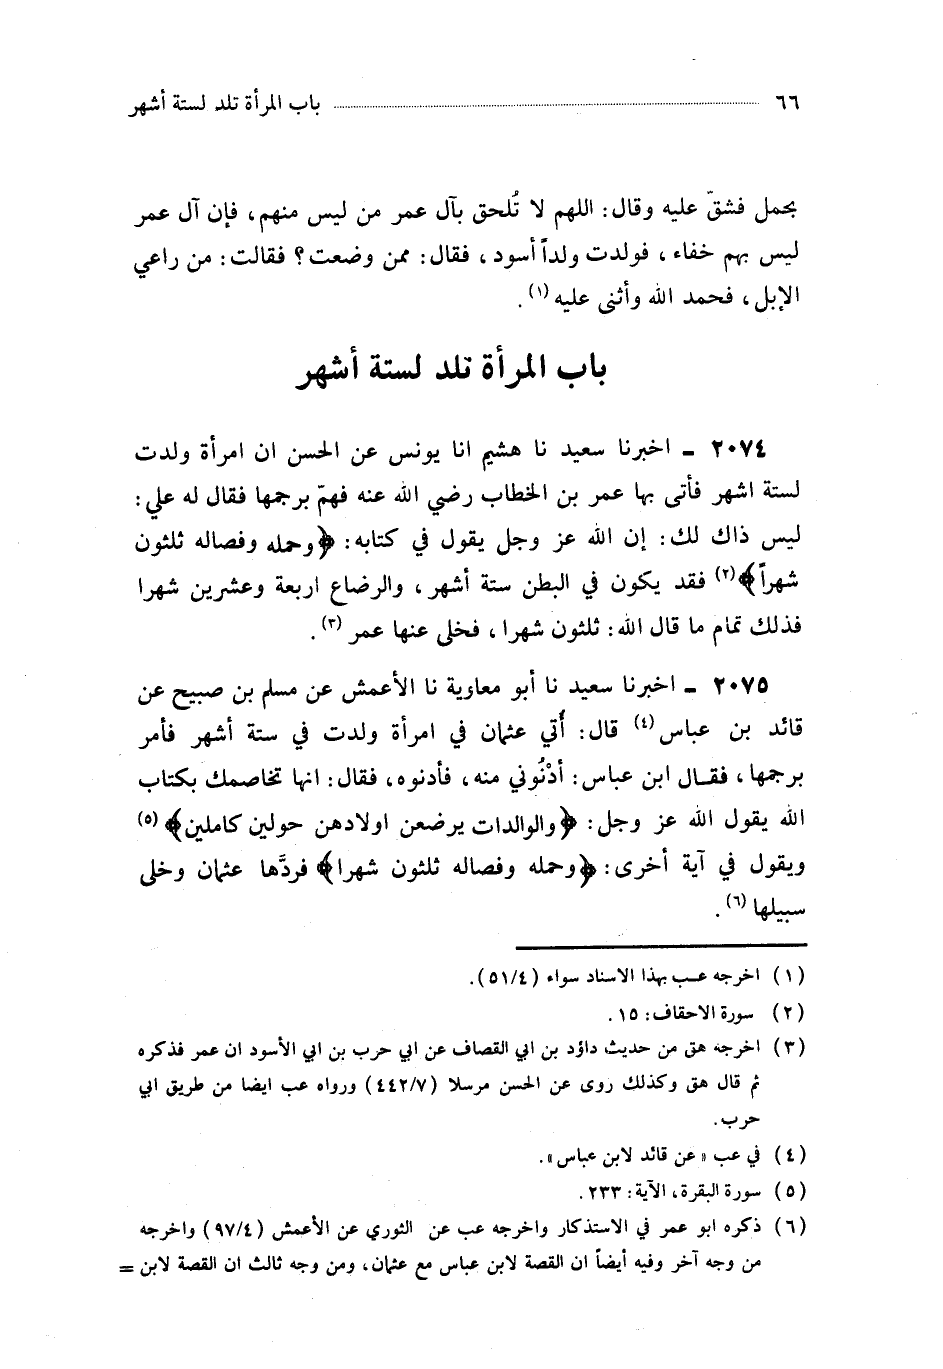 ٦٦ باب المرأة تلد لستة أشهر
بحمل فشقّ عليه وقال: اللهم لا تُلحق بآل عمر من ليس منهم، فإن آل عمر
ليس بهم خفاء، فولدت ولداً أسود، فقال: ممن وضعت؟ فقالت: من راعي
الإبل، فحمد الله وأثنى عليه (١).
باب المرأة تلد لستة أشهر
٢٠٧٤ ـ اخبرنا سعيد نا هشيم انا يونس عن الحسن ان امرأة ولدت
لستة اشهر فأتى بها عمر بن الخطاب رضي الله عنه فهمّ برجمها فقال له علي:
ليس ذاك لك: إن الله عز وجل يقول في كتابه: ﴿وحمله وفصاله ثلثون
شهراً﴾(٢) فقد يكون في البطن ستة أشهر، والرضاع اربعة وعشرين شهرا
فذلك تمام ما قال الله: ثلثون شهرا، فخلى عنها عمر (٣).
٢٠٧٥ ـ اخبرنا سعيد نا أبو معاوية نا الأعمش عن مسلم بن صبيح عن
قائد بن عباس (٤) قال: أُتي عثمان في امرأة ولدت في ستة أشهر فأمر
برجمها، فقال ابن عباس: أدْنُوني منه، فأدنوه، فقال: انها تخاصمك بكتاب
الله يقول الله عز وجل: ﴿والوالدات يرضعن اولادهن حولين كاملين﴾ (٥)
ويقول في آية أخرى: ﴿وحمله وفصاله ثلثون شهرا﴾ فردَّها عثمان وخلى
سبيلها (٦).
(١) اخرجه عب بهذا الاسناد سواء (٥١/٤).
(٢) سورة الاحقاف: ١٥.
(٣) اخرجه هق من حديث داؤد بن ابي القصاف عن ابي حرب بن ابي الأسود ان عمر فذكره
ثم قال هق وكذلك روى عن الحسن مرسلا (٤٤٢/٧) ورواه عب ايضا من طريق ابي
حرب.
(٤) في عب «عن قائد لابن عباس».
(٥) سورة البقرة، الآية: ٢٣٣.
(٦) ذكره ابو عمر في الاستذكار واخرجه عب عن الثوري عن الأعمش (٩٧/٤) واخرجه
من وجه آخر وفيه أيضاً ان القصة لابن عباس مع عثمان، ومن وجه ثالث ان القصة لابن =